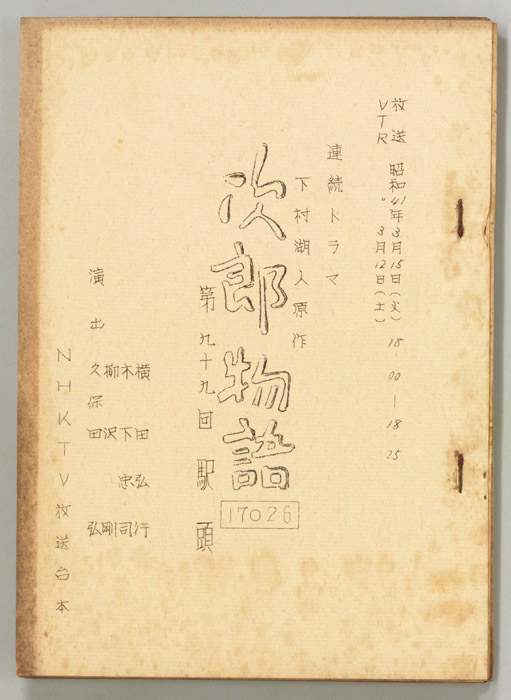 放送 昭和41年3月15日(火) 18.00―18.25
VTR 〃 3月12日(土)
連続ドラマ
下村湖人原作
次郎物語
17026
第九十九回 駅頭
横田弘行
木下忠司
柳沢剛
演出 久保田弘
NHKTV放送台本